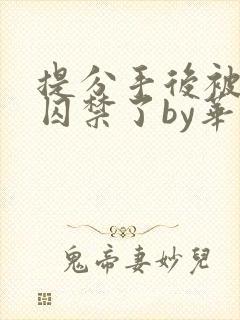 提分手後被
囚禁了by華
鬼帝妻妙兒